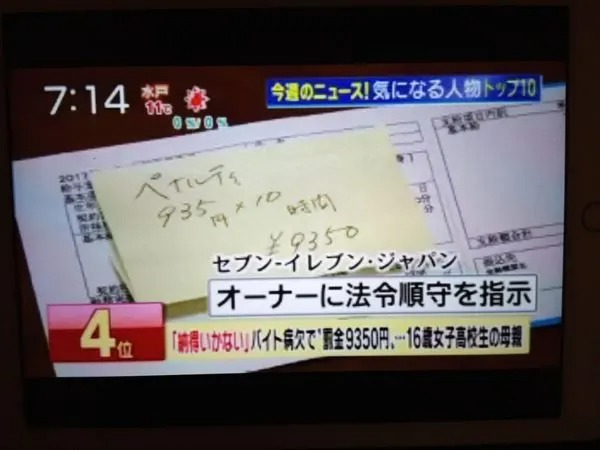 7:14
水戸
11℃
0%/0%
今週のニュース!気になる人物トップ10
2017
支給項目内訳
基本給
ペナルティ
935円×10時間
¥9350
支給額合計
振込先
セブン-イレブン・ジャパン
オーナーに法令順守を指示
4位
「納得いかない」バイト病欠で"罰金9350円、…16歳女子高校生の母親